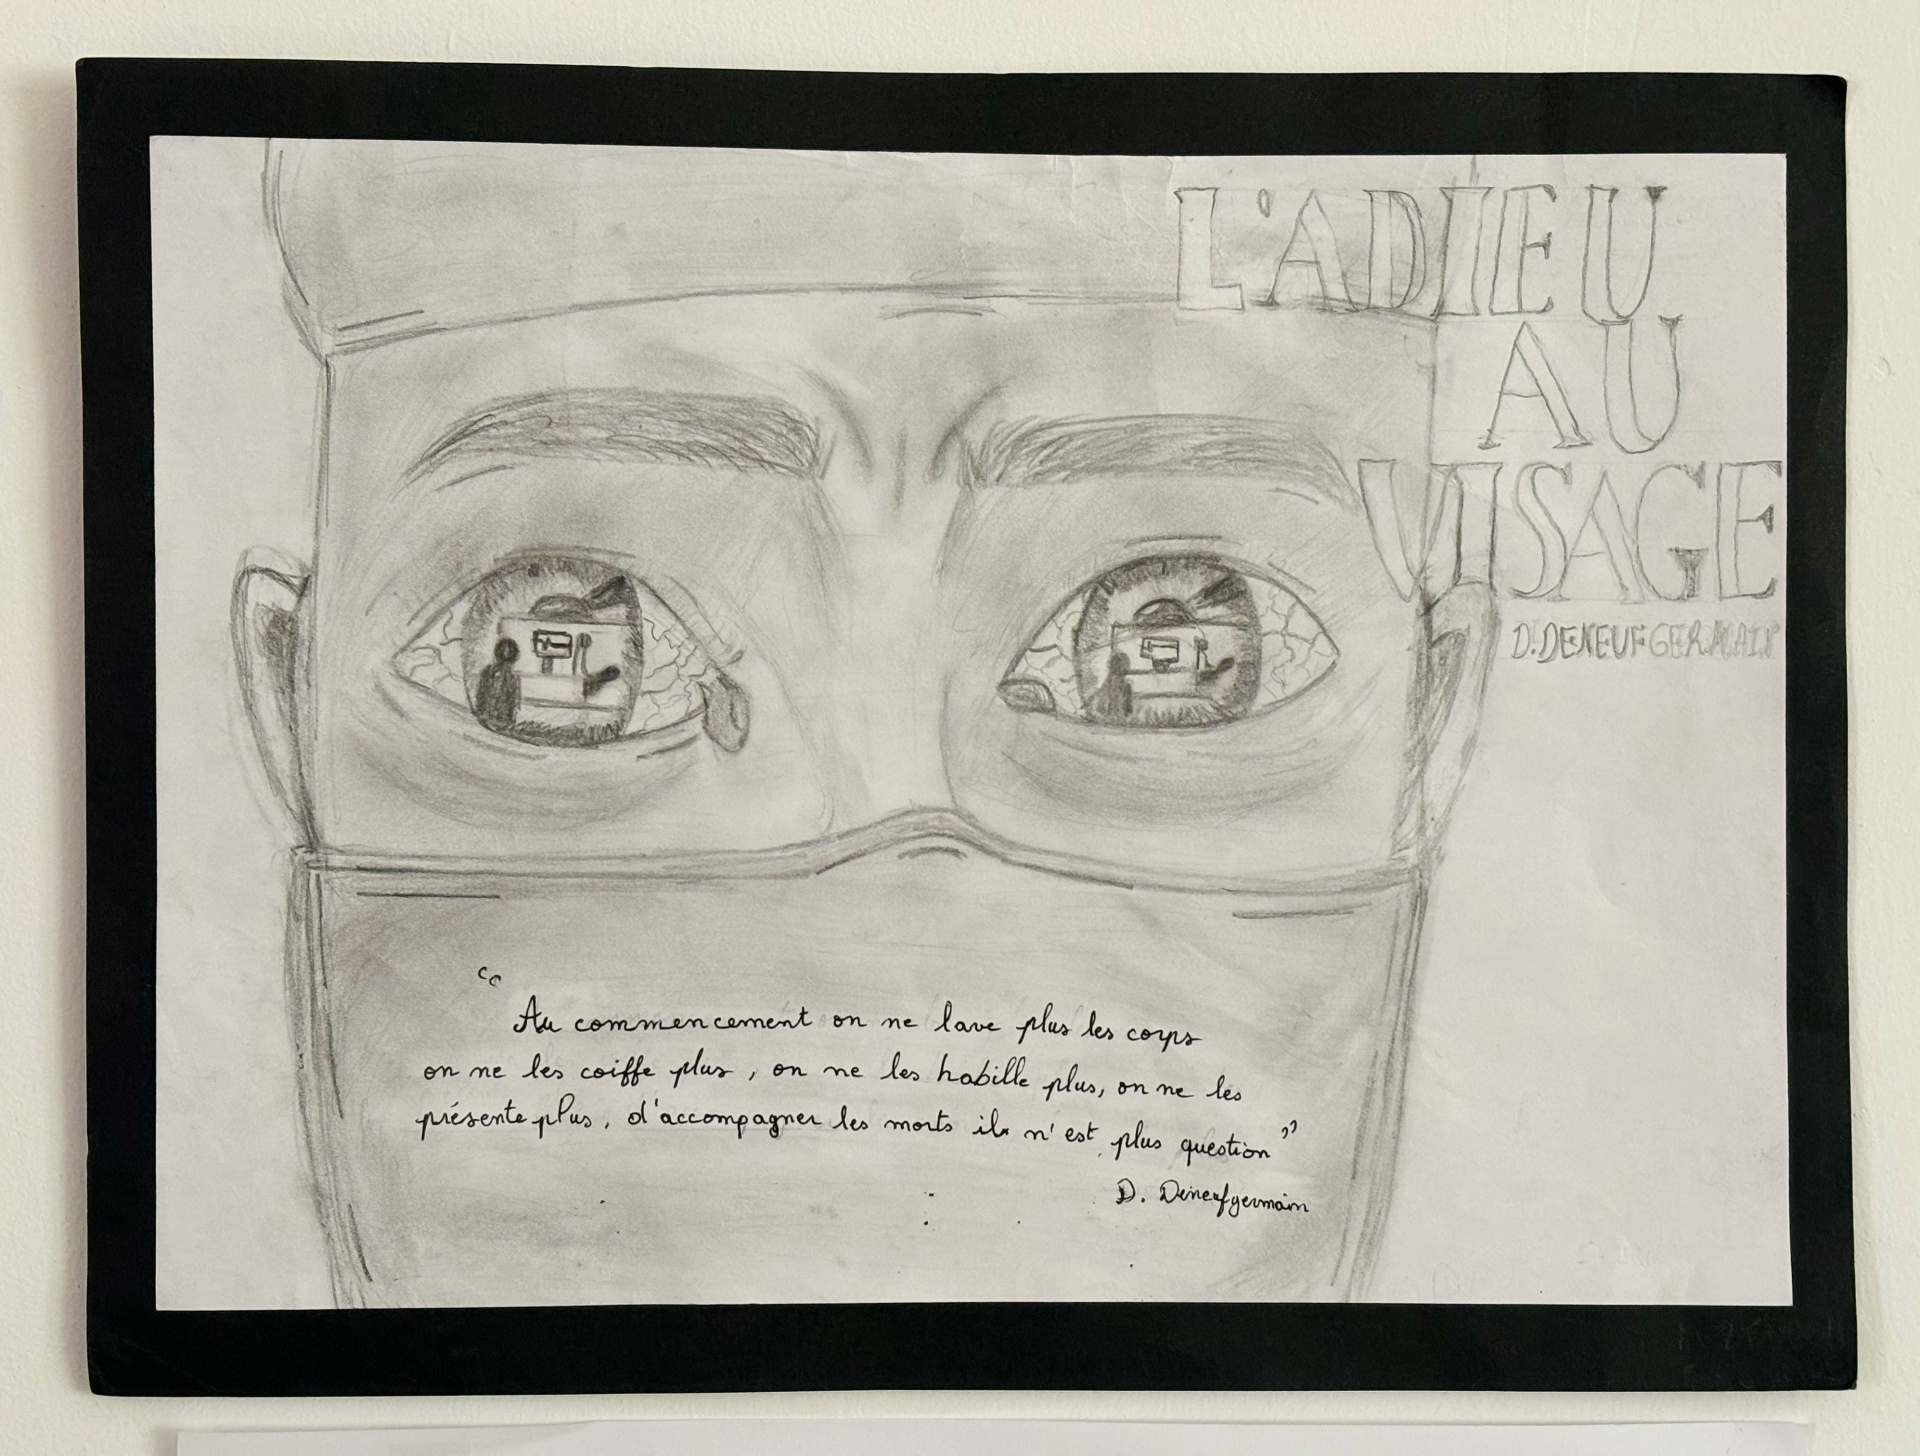 L'ADIEU
AU
VISAGE
D. DENEUFGERMAIN
“
Au commencement on ne lave plus les corps
on ne les coiffe plus, on ne les habille plus, on ne les
présente plus, d'accompagner les morts il n'est plus question”
D. Deneufgermain